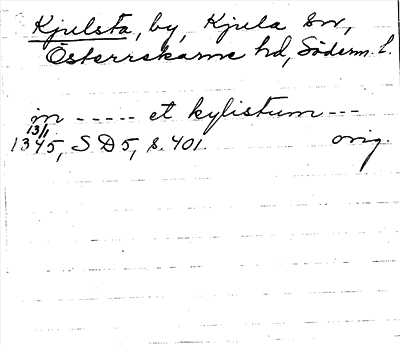 Kjulsta, by, Kjula sn,
Österrekarne hd, Söderm. l.
in ----- et kylistum ---
13/1
1345, SD5, s. 401. orig.